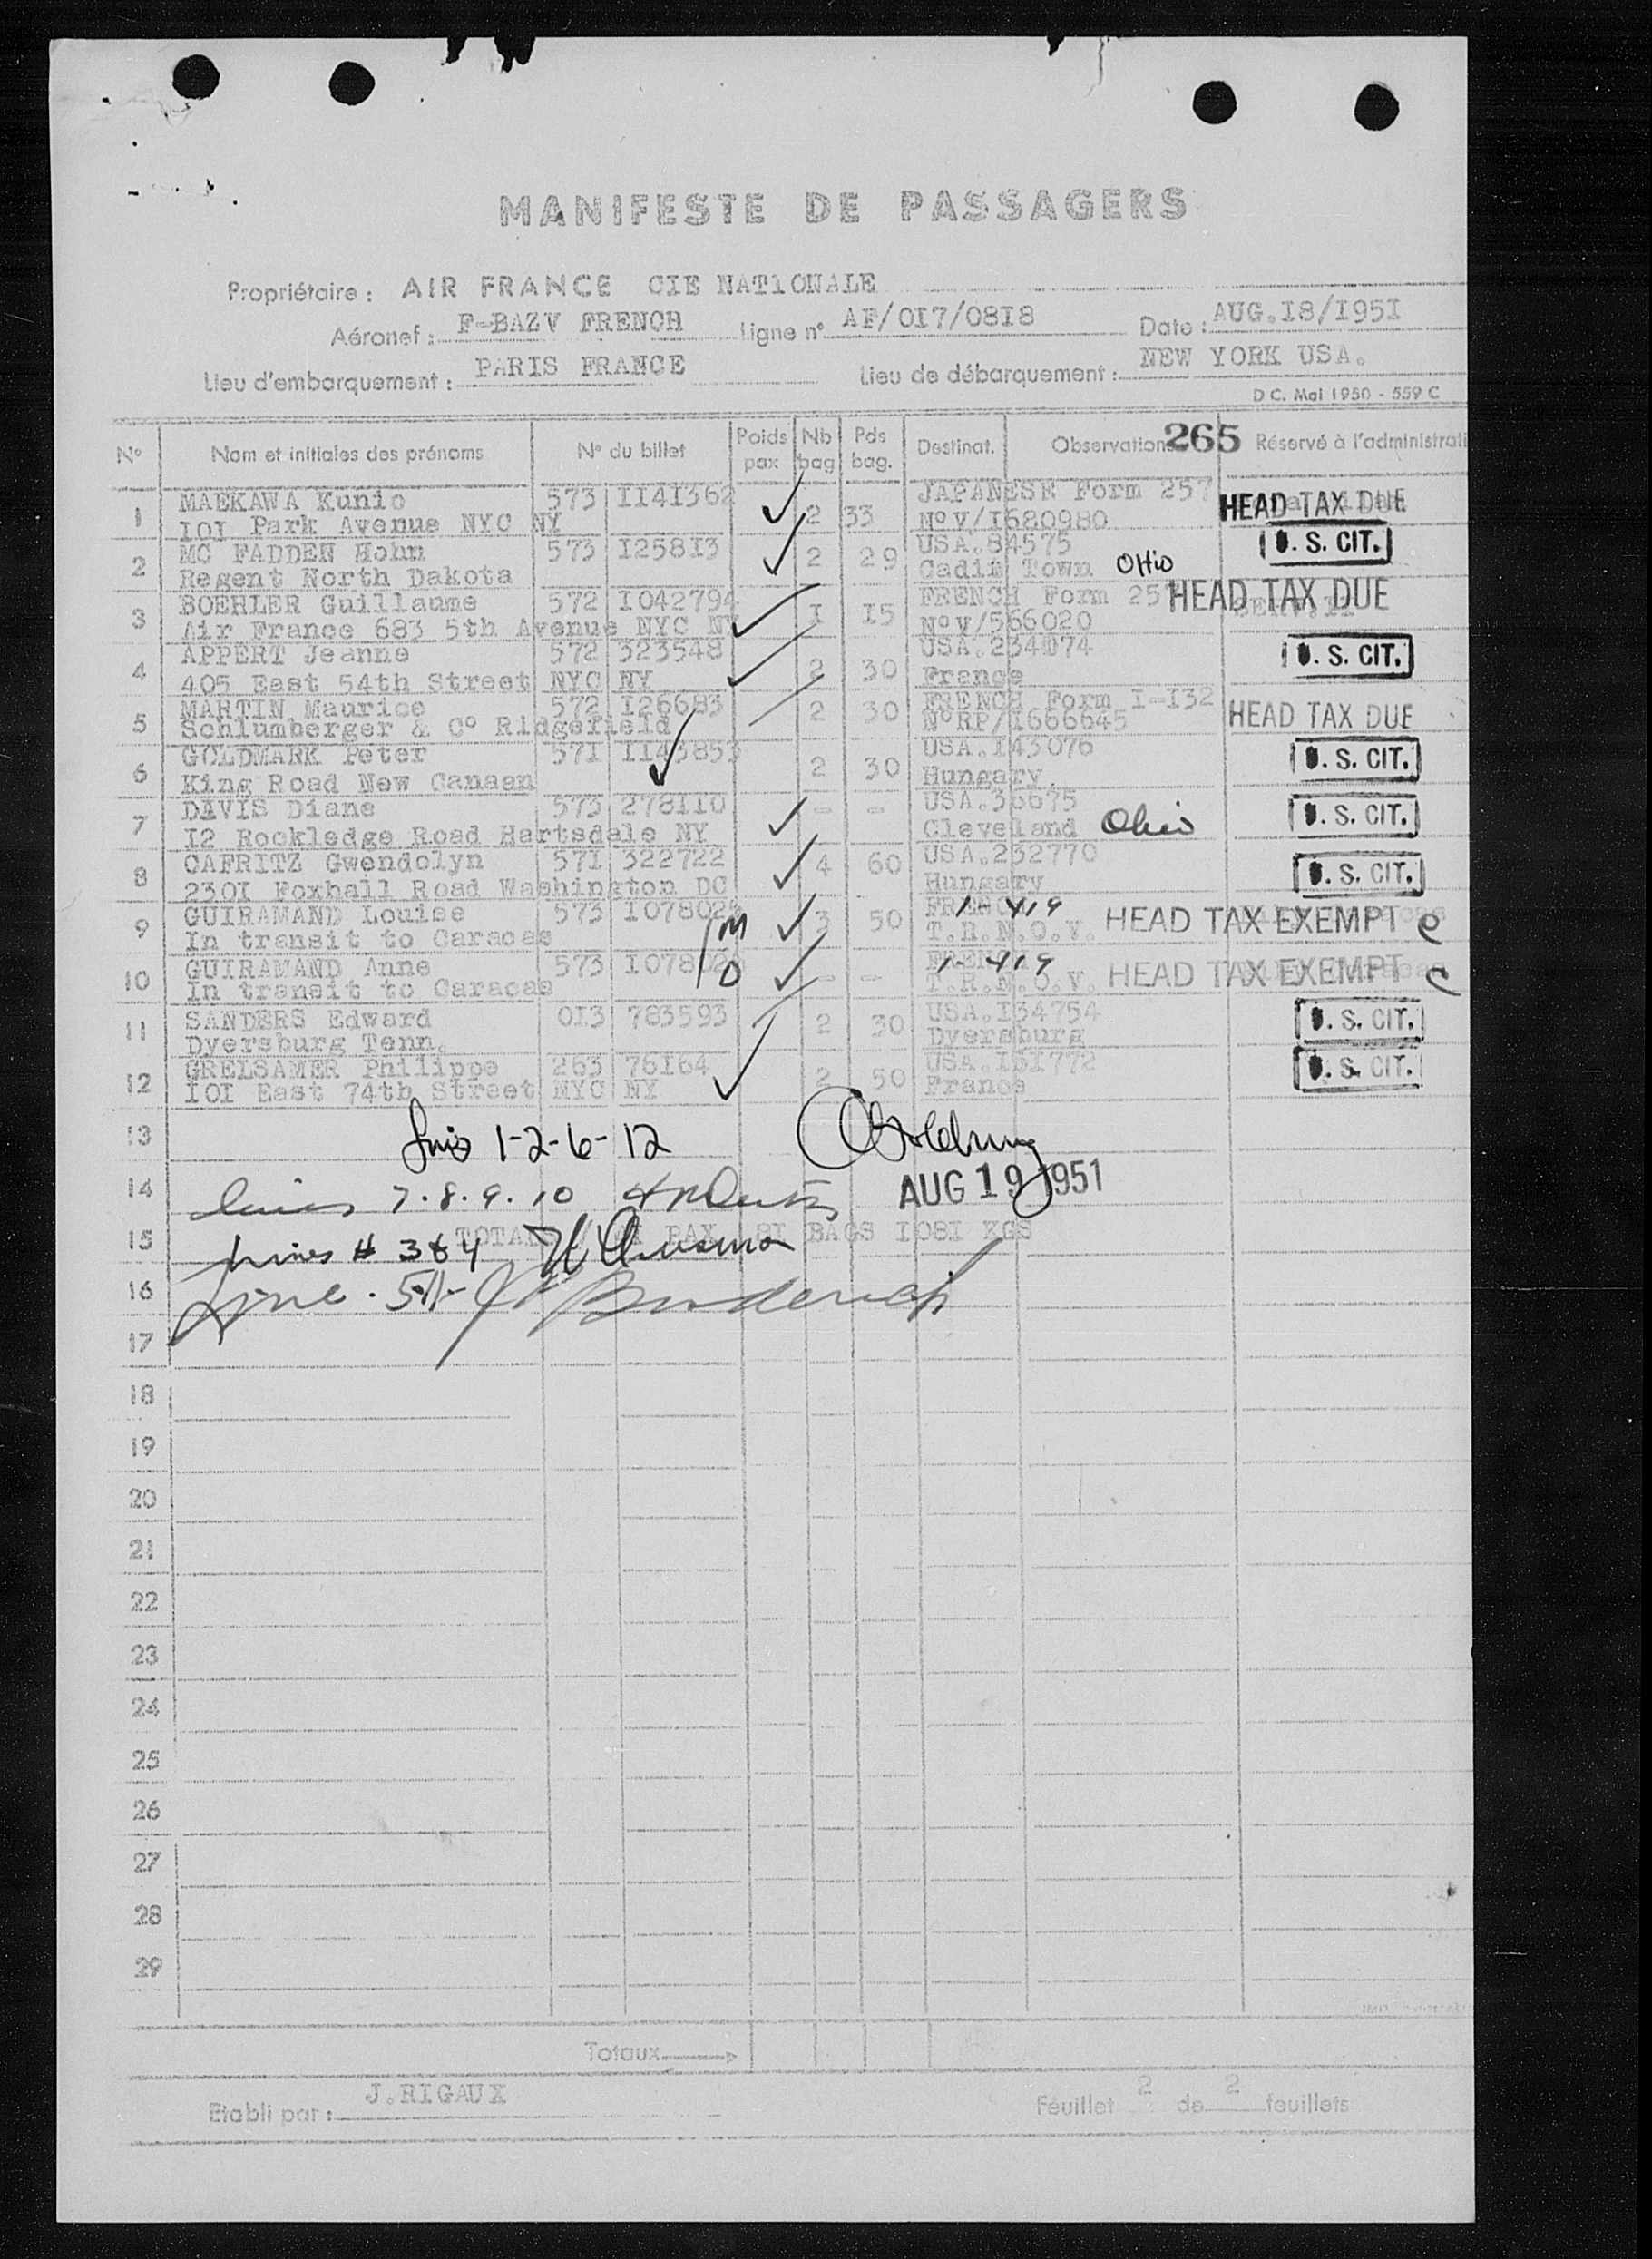 MANIFESTE DE PASSAGERS
Propriétaire : AIR FRANCE CIE NATIONALE
Aéronef : F-BAZV FRENCH Ligne n° AF/017/0818 Date : AUG.18/1951
Lieu d'embarquement : PARIS FRANCE Lieu de débarquement : NEW YORK USA.
D C. Mai 1950 - 559 C
N° Nom et initiales des prénoms N° du billet Poids pax Nb bag Pds bag. Destinat. Observations 265 Réservé à l'administrati
1 MAEKAWA Kunio 573 1141362 2 33 JAPANESE Form 257 HEAD TAX DUE
101 Park Avenue NYC NY N°V/1680980
2 MC FADDEN Hohn 573 125813 2 29 USA.84575 U. S. CIT.
Regent North Dakota Cadim Town OHio
3 BOEHLER Guillaume 572 1042794 1 15 FRENCH Form 257 HEAD TAX DUE
Air France 683 5th Avenue NYC NY N°V/566020
4 APPERT Jeanne 572 323548 2 30 USA. U. S. CIT.
405 East 54th Street NYC NY France
5 MARTIN Maurice 572 126683 2 30 FRENCH Form I-132 HEAD TAX DUE
Schlumberger & C° Ridgefield N°RP/1666645
6 GOLDMARK Peter 571 1143853 2 30 USA.143076 U. S. CIT.
King Road New Canaan Hungary.
7 DAVIS Diane 573 278110 - - USA.36675 U. S. CIT.
12 Rockledge Road Hartsdale NY Cleveland Ohio
8 CAFRITZ Gwendolyn 571 322722 4 60 USA.232770 U. S. CIT.
2301 Foxhall Road Washington DC Hungary
9 GUIRAMAND Louise 573 107802 M 3 50 FRENCH 419 HEAD TAX EXEMPT C
In transit to Caracas T.R.N.O.V.
10 GUIRAMAND Anne 573 D - - FRENCH 419 HEAD TAX EXEMPT C
In transit to Caracas T.R.N.O.V.
11 SANDERS Edward 013 783593 2 30 USA.134754 U. S. CIT.
Dyersburg Tenn. Dyersburg
12 GRELSAMER Philippe 263 76164 2 50 USA.131772 U. S. CIT.
101 East 74th Street NYC NY France
13 1-2-6-12
14 Lines 7.8.9.10 AUG 19 1951
15 TOTAL PAX 81 BAGS 1081 KGS
Lines # 3 & 4
16 Line
17
18
19
20
21
22
23
24
25
26
27
28
29
Totaux
Etabli par : J.RIGAUX Feuillet 2 de 2 feuillets